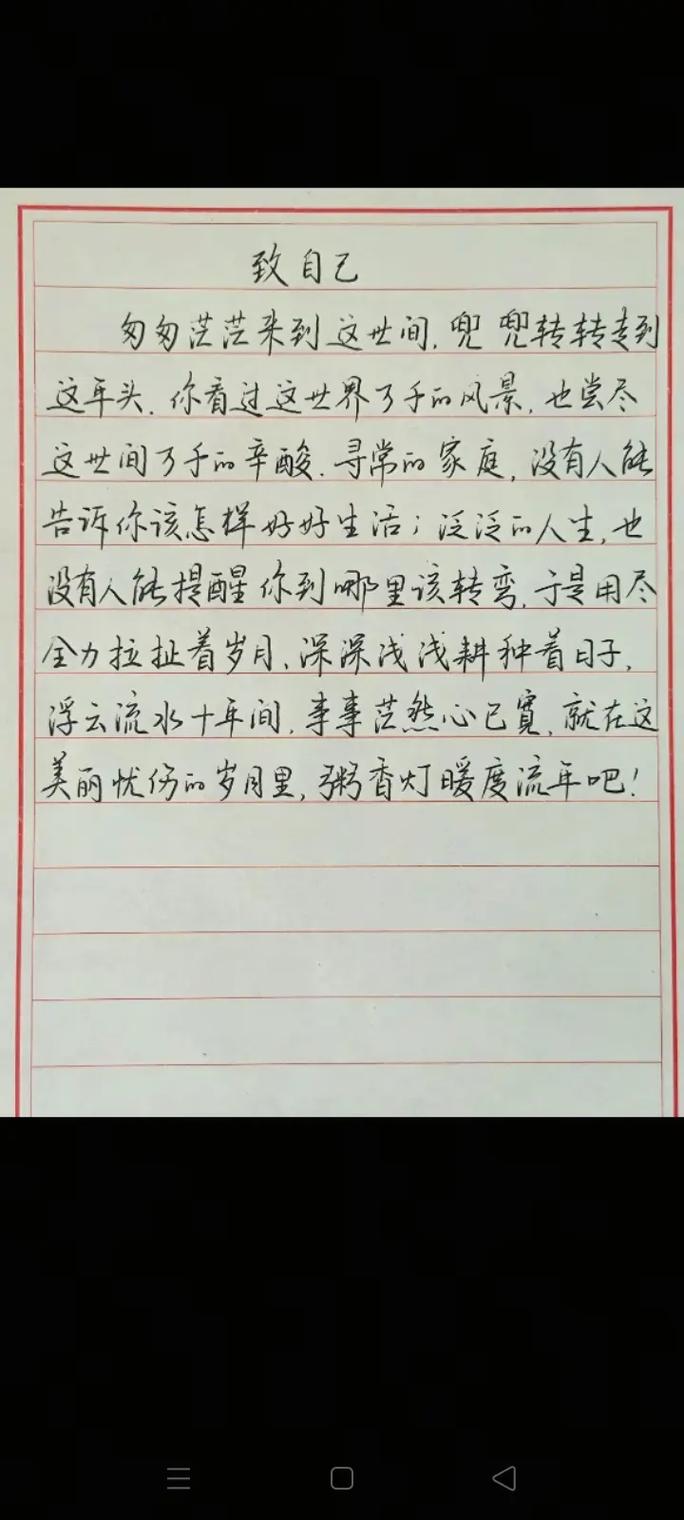 致自己
匆匆茫茫来到这世间，兜兜转转走到
这年头，你看过这世界万千的风景，也尝尽
这世间万千的辛酸．寻常的家庭，没有人能
告诉你该怎样好好生活；泛泛的人生，也
没有人能提醒你到哪里该转弯，于是用尽
全力拉扯着岁月、深深浅浅耕种着日子，
浮云流水十年间，事事茫然心已寛，就在这
美丽忧伤的岁月里，粥香灯暖度流年吧！